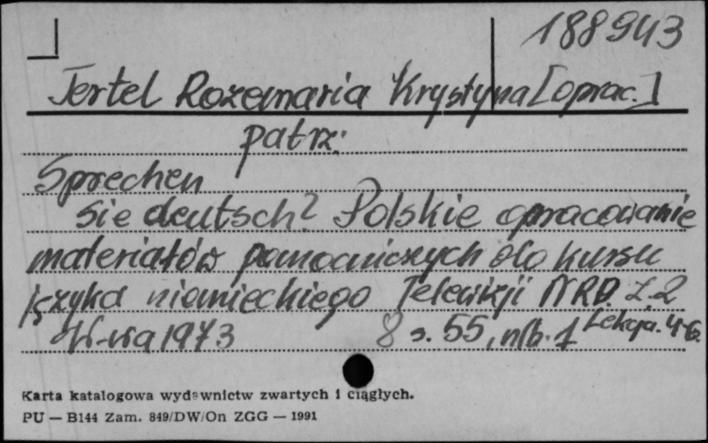 188943
Jertel Rozemaria Krystyna [oprac.]
patrz:
Sprechen
Sie deutsch? Polskie opracowanie
materiałów pomocniczych do kursu
języka niemieckiego Telewizji NRD. Z. 2
W-wa 1973 8 s. 55, nlb. 1 Lekcja. 4-6.
Karta katalogowa wydawnictw zwartych i ciągłych.
PU — B144 Zam. 849/DW/On ZGG — 1991